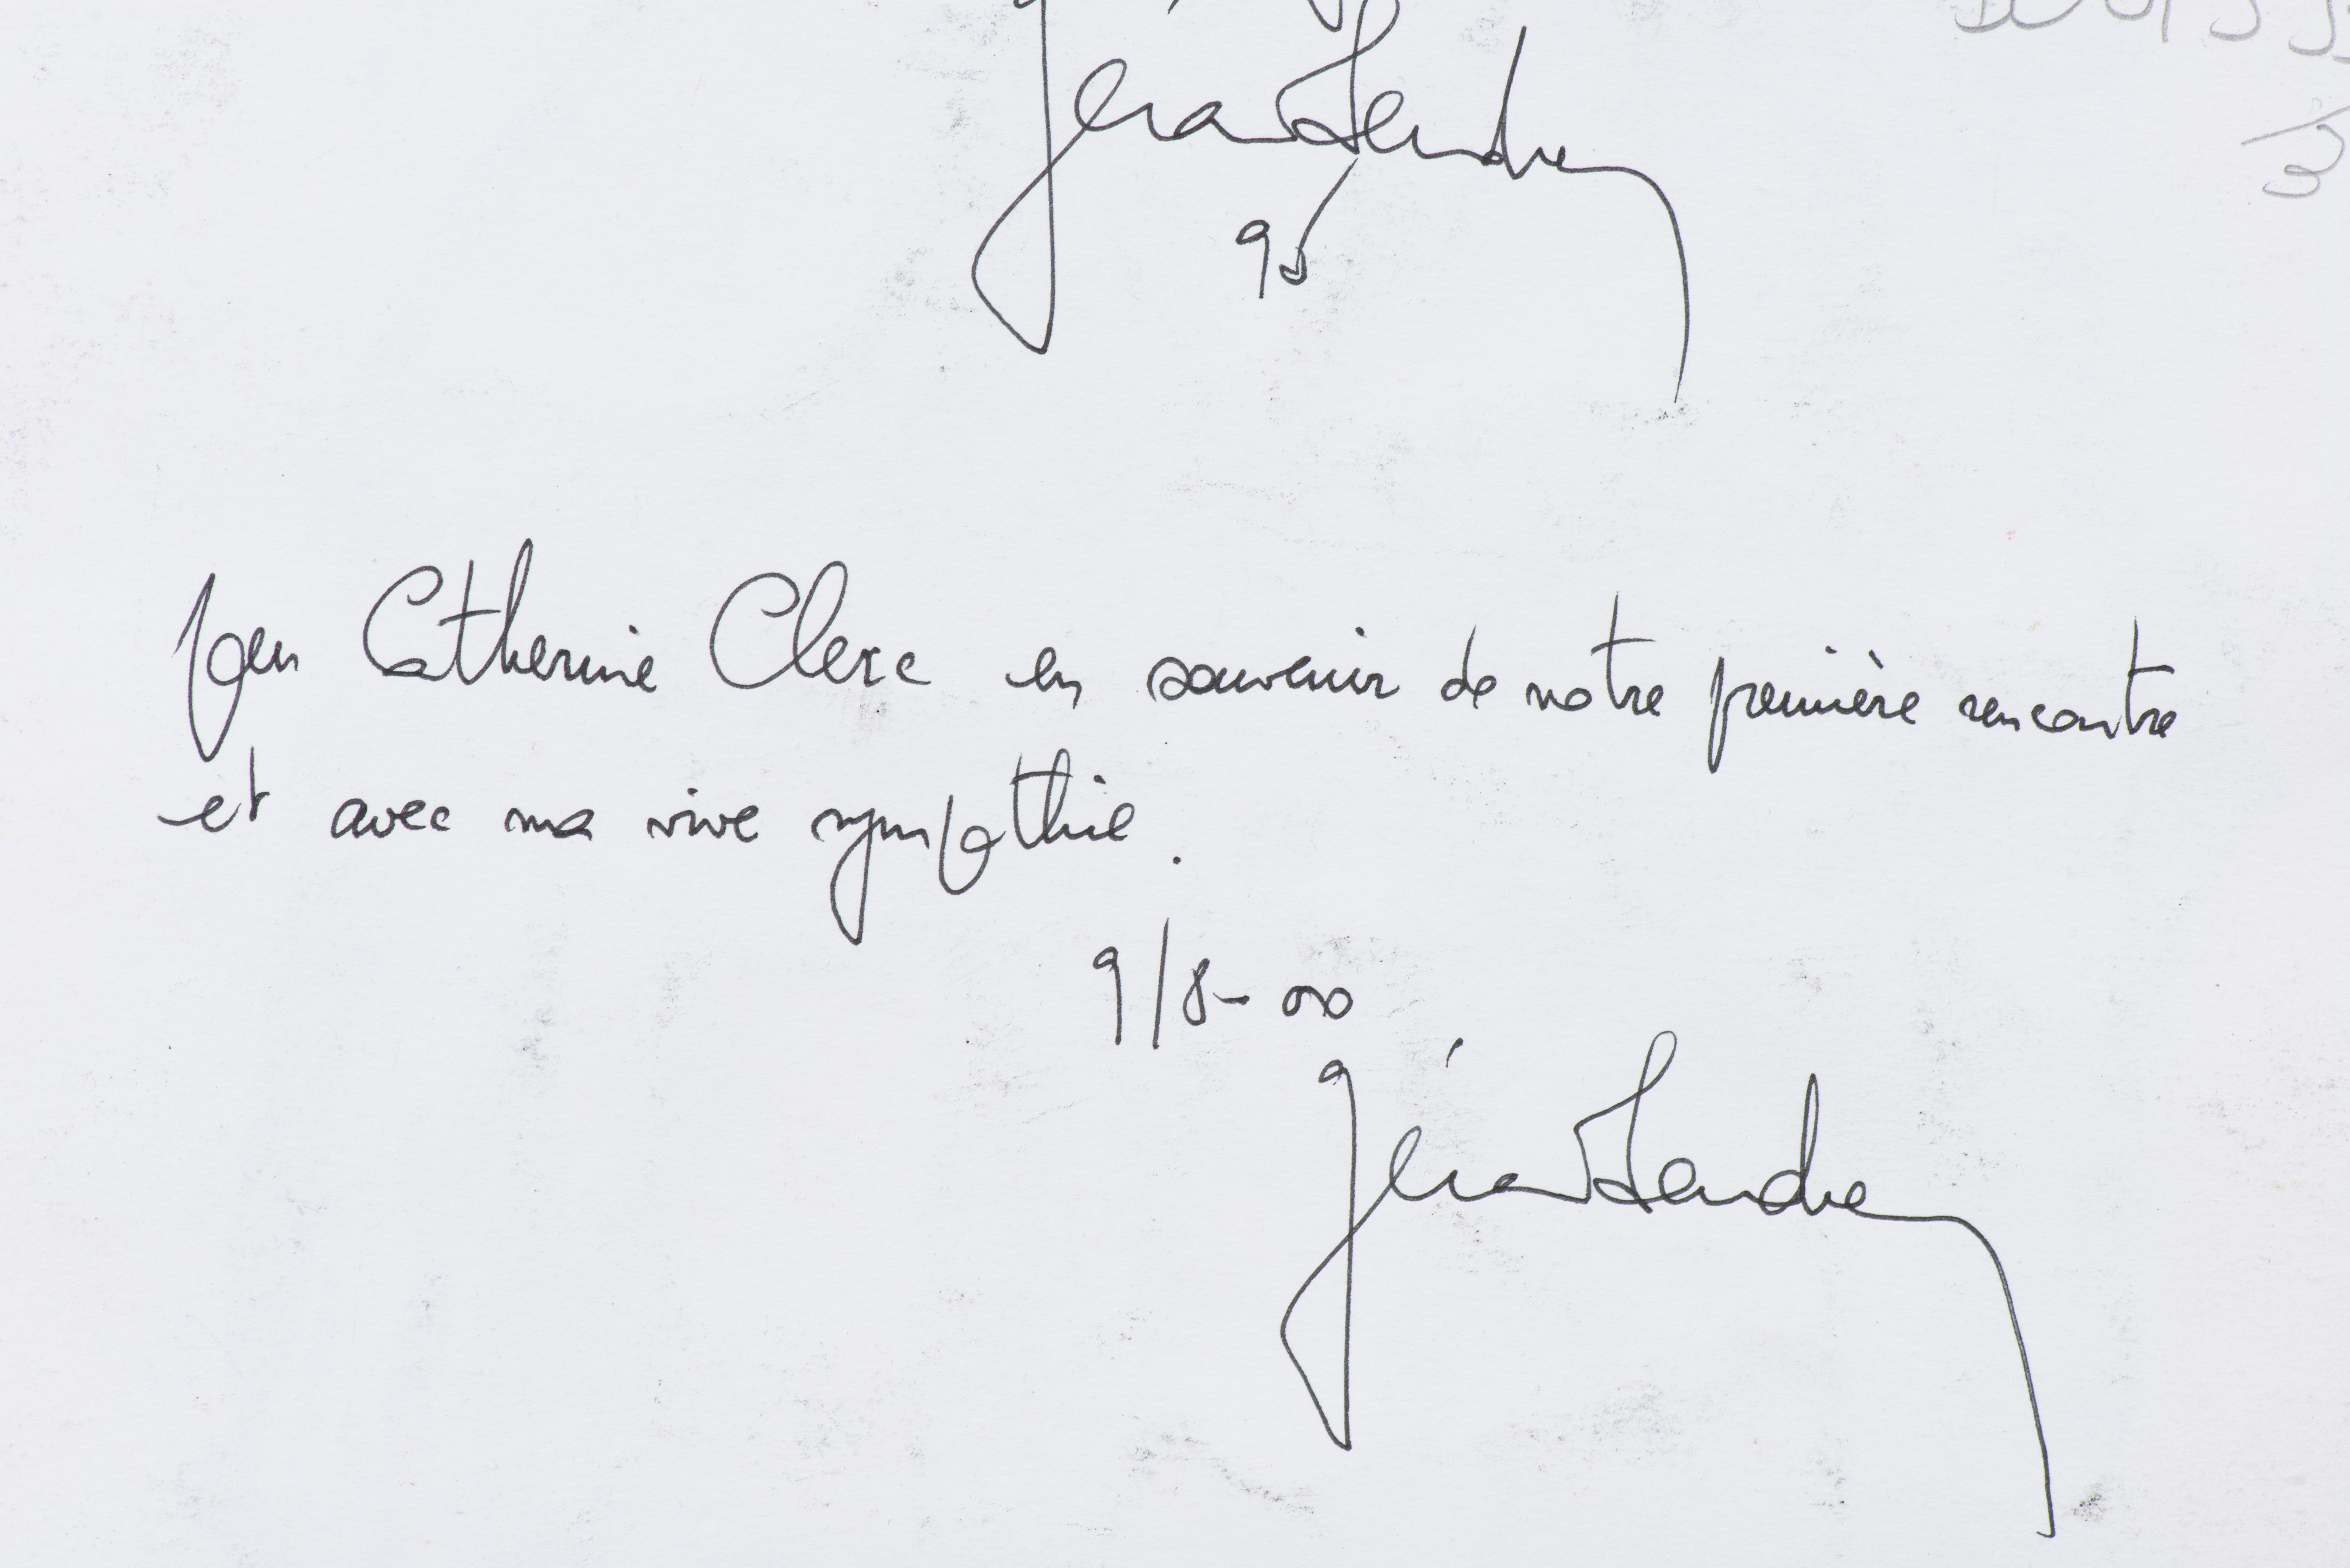 Géra Dendre
95
Pour Catherine Clerc en souvenir de notre première rencontre
et avec ma vive sympathie.
9/8-00